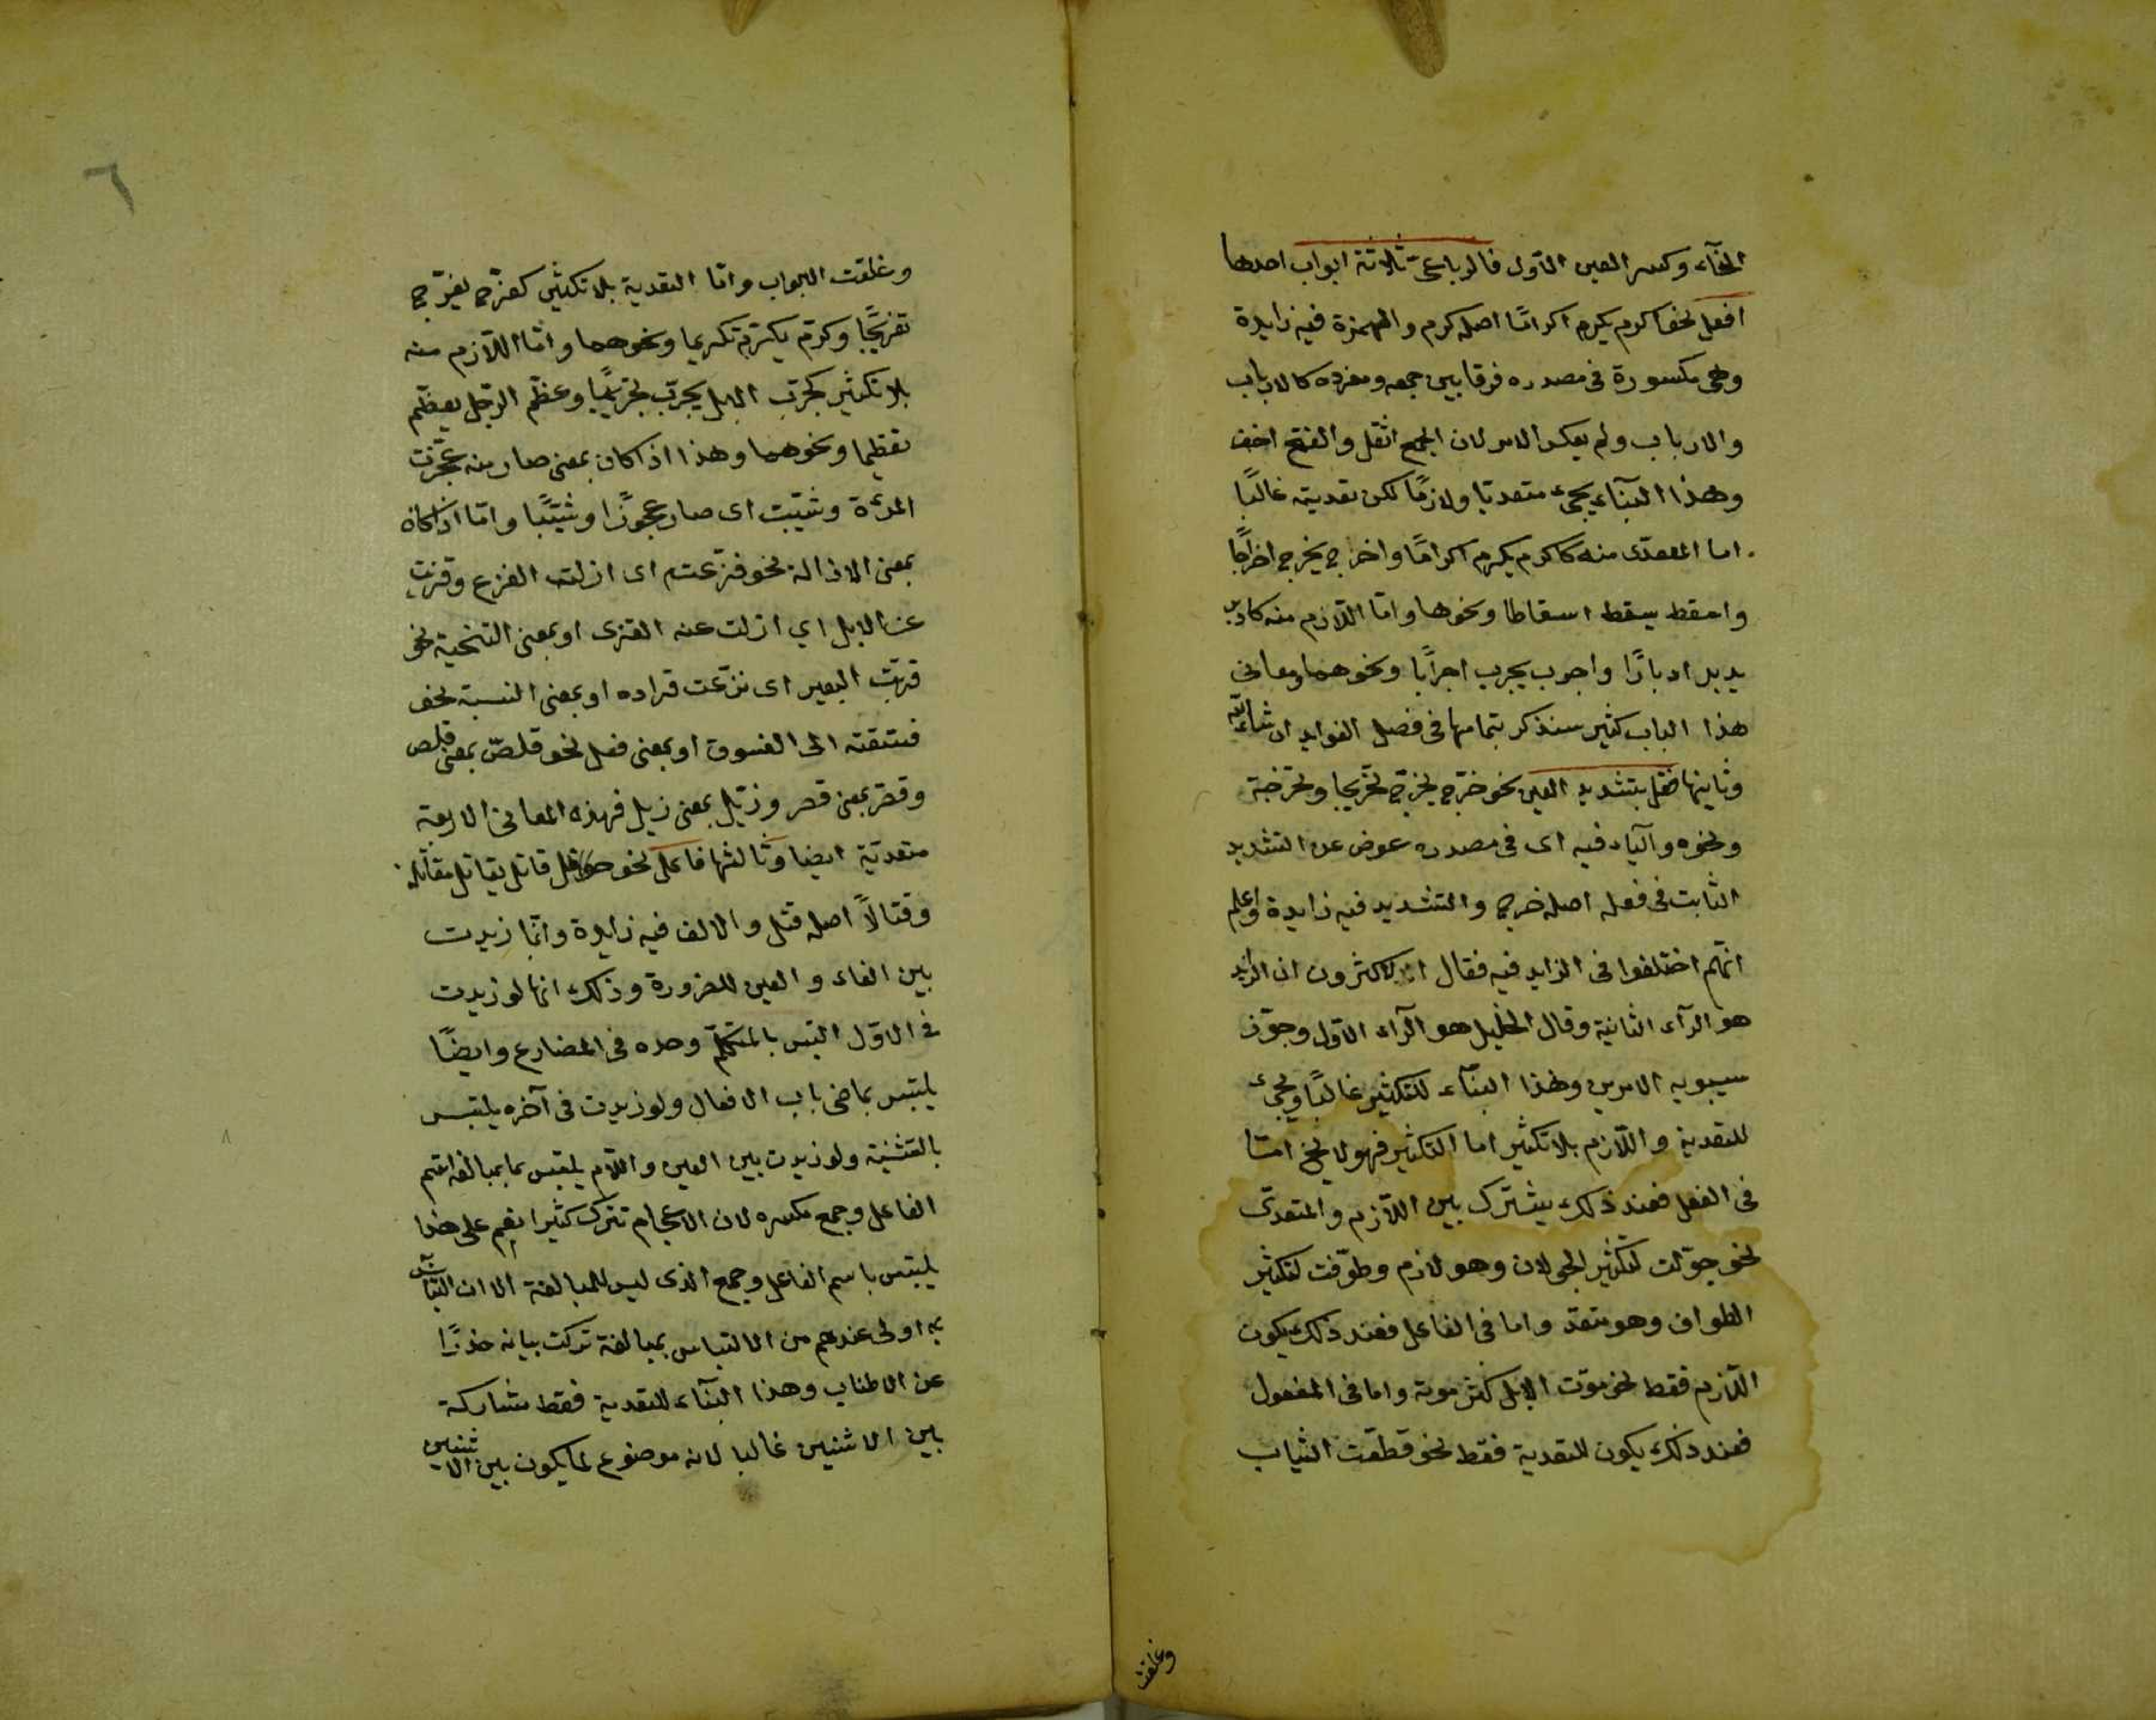 الخاء وكسر العين الاول فالرباعى ثلاثة ابواب احدها
افعل نحو اكرم يكرم اكراما اصله كرم والهمزة فيه زايدة
وهى مكسورة فى مصدره فرقا بين جمعه ومفرده كالارباب
والارباب ولم يعكس الامر لان الجمع اثقل والفتح اخف
وهذا البنآء يجئ متعديا ولازمًا لكن تعديته غالبًا
اما المتعدى منه كاكرم يكرم اكرامًا واخرج يخرج اخراجًا
واسقط يسقط اسقاطا ونحوها وامّا اللّازم منه كادبر
يدبر ادبارًا واجرب يجرب اجرابًا ونحوهما ومعانى
هذا الباب كثير سنذكر بتمامها فى فصل الفوايد ان شاء الله
وثانيها فعّل بتشديد العين نحو خرّج يخرّج تخريجا وتخرجة
ونحوه والياء فيه اى فى مصدره عوض عن التشديد
الثابت فى فعله اصله خرج والتشديد فيه زايدة واعلم
انّهم اختلفوا فى الزايد فيه فقال الاكثرون ان الزايد
هو الرآء الثانية وقال الخليل هو الرآء الاول وجوّز
سيبويه الامرين وهذا البنآء للتكثير غالبًا ويجئ
للتعدية واللّازم بلا تكثير اما التكثير فهو لا يخ امّا
فى الفعل فعند ذلك يشترك بين اللّازم والمتعدّى
نحو جوّلت لتكثير الجولان وهو لازم وطوّفت لتكثير
الطواف وهو متعد واما فى الفاعل فعند ذلك يكون
اللّازم فقط نحو موّت الابل كثر موته واما فى المفعول
فعند ذلك يكون للتعدية فقط نحو قطّعت الثياب
وغلقت
٦
وغلقت الابواب وامّا التعدية بلا تكثير كفرّح يفرّح
تفريحًا وكرّم يكرّم تكريما ونحوهما وامّا اللّازم منه
بلا تكثير كجرّب الابل يجرّب تجريبًا وعظّم الرّجل يعظّم
تعظيما ونحوهما وهذا اذا كان بمعنى صار منه عجّزت
المرءة وشيّبت اى صار عجوزًا وشيّبًا وامّا اذا كان
بمعنى الازالة نحو فزّعته اى ازلت الفزع وقزيت
عن الابل اي ازلت عنه القزى او بمعنى التنحية نحو
قرّدت البعير اى نزّعت قراده او بمعنى النسبة نحو
فسّقته الى الفسوق او بمعنى فعل نحو قلّص بمعنى قلص
وقصّر بمعنى قصر وزيّل بمعنى زيل فهذه المعانى الاربعة
متعدّية ايضا وثالثها فاعل نحو قاتل يقاتل مقاتلة
وقتالاً اصله قتل والالف فيه زايدة وانّما زيدت
بين الفاء والعين للضرورة وذلك انها لو زيدت
فى الاوّل التبس بالمتكلّم وحده فى المضارع وايضًا
يلتبس بماضى باب الافعال ولو زيدت فى آخره يلتبس
بالتثنية ولو زيدت بين العين واللّام يلتبس بمبالغة اسم
الفاعل وجمع مكسره لان الاعجام تترك كثيرا نعم على هذا
يلتبس باسم الفاعل وجمع الذى ليس للمبالغة الا ان التباس
به اولى عندهم من الالتباس بمبالغة تركت بيانه حذرًا
عن الاطناب وهذا البنآء للتعدية فقط مشاركة
بين الاثنين غالبا لانه موضوع لما يكون بين الاثنين